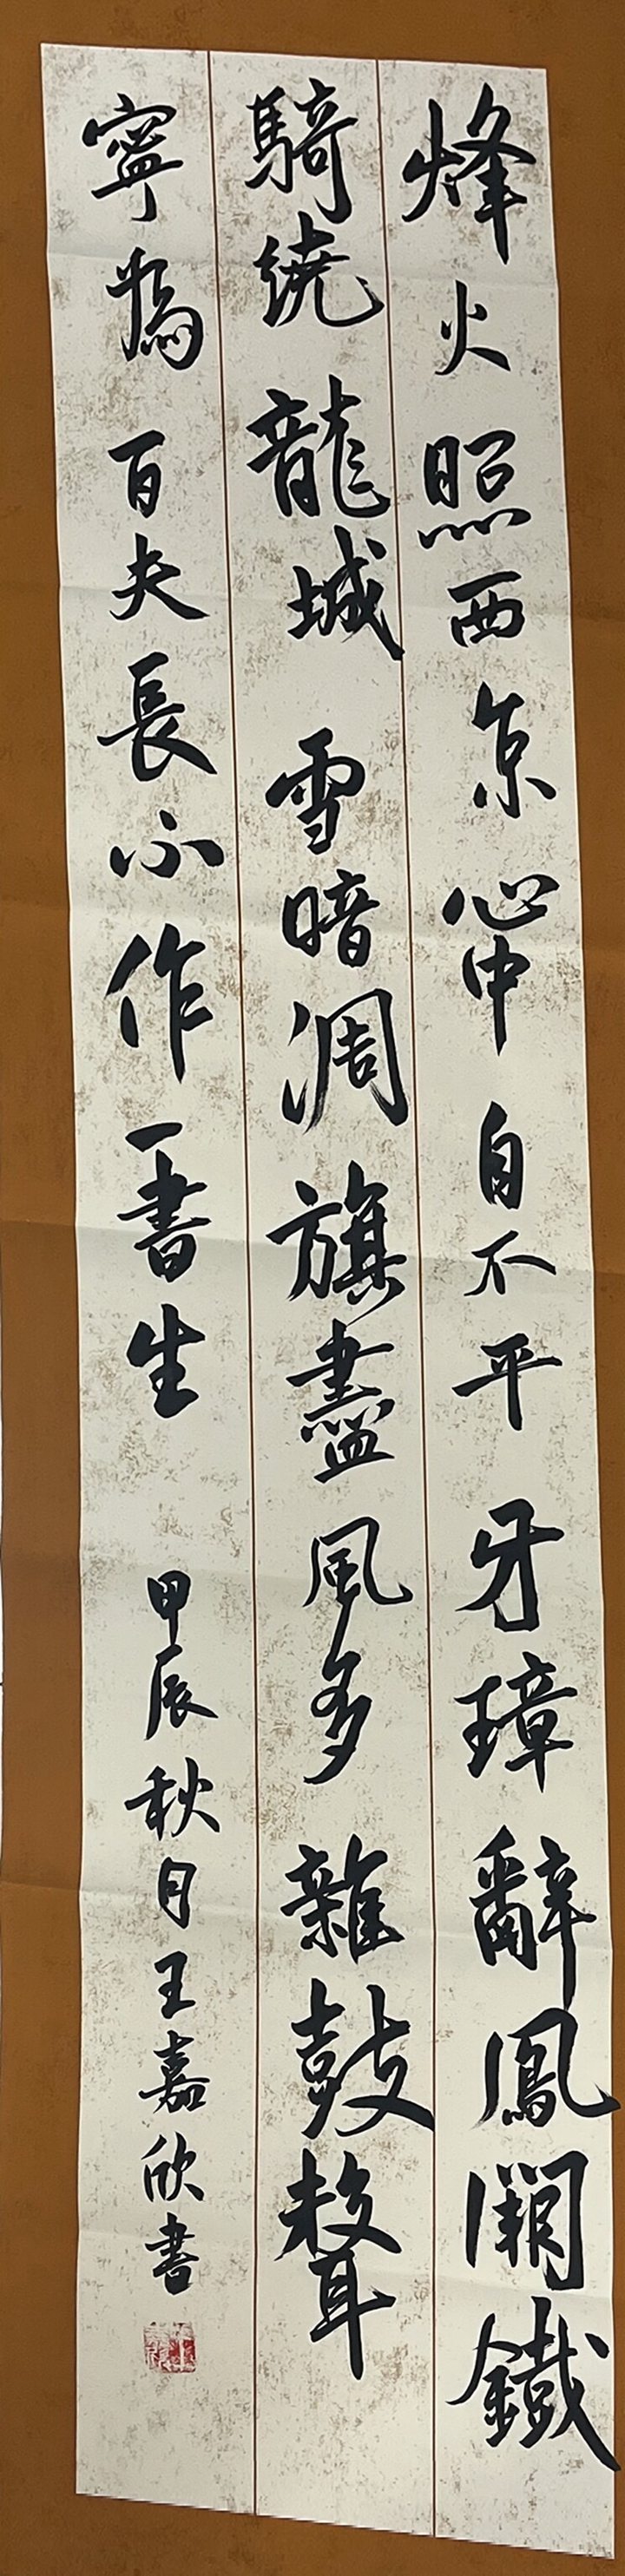 烽火照西京心中自不平牙璋辭鳳闕鐵
騎繞龍城雪暗凋旗盡風多雜鼓聲
寧為百夫長不作一書生 甲辰秋月王嘉欣書